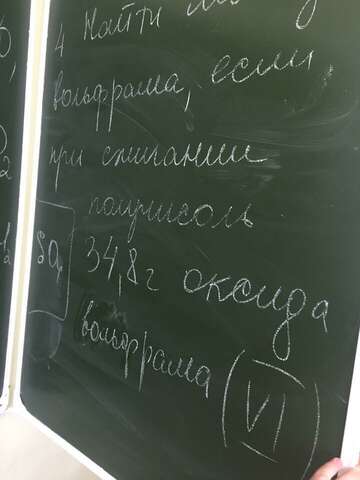 4 Найти
вольфрама, если
при сжигании
получилось
34,8г оксида
вольфрама (VI)